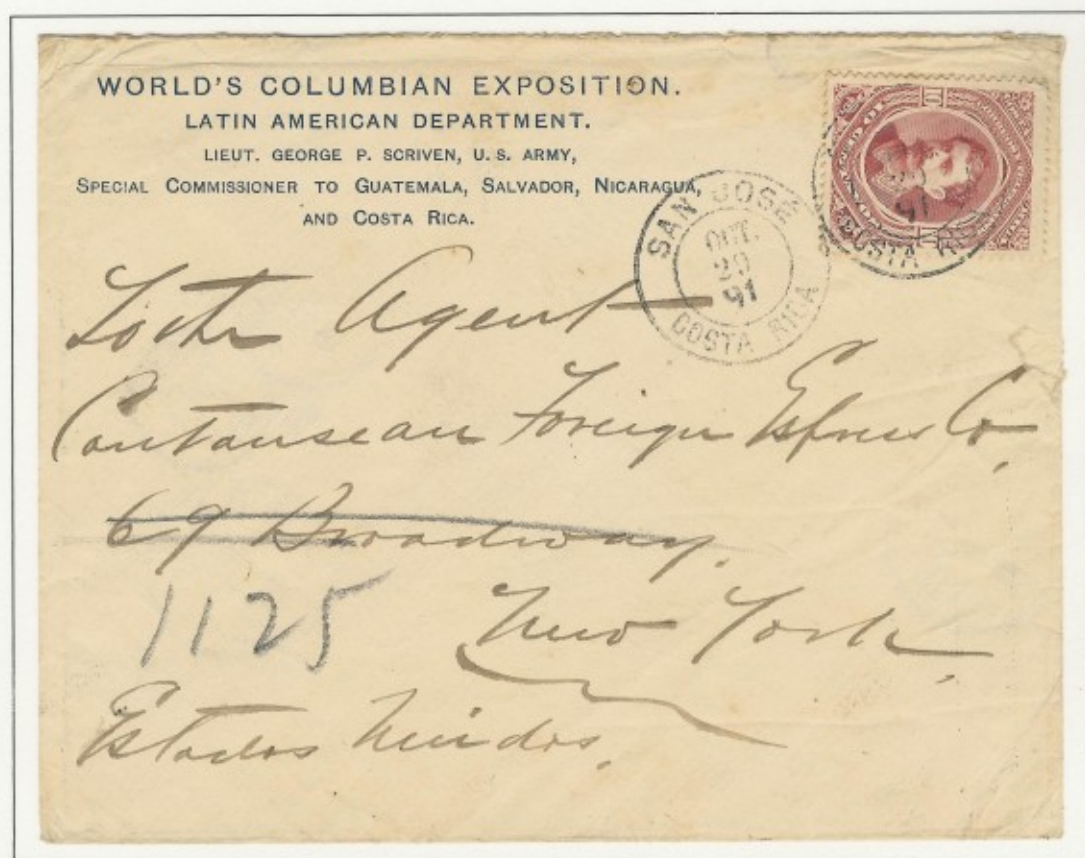 WORLD'S COLUMBIAN EXPOSITION.
LATIN AMERICAN DEPARTMENT.
LIEUT. GEORGE P. SCRIVEN, U. S. ARMY,
SPECIAL COMMISSIONER TO GUATEMALA, SALVADOR, NICARAGUA,
AND COSTA RICA.
10
SAN JOSÉ
OCT.
29
91
COSTA RICA
91
COSTA RICA
To the Agent
Contanseau Foreign Express Co.
69 Broadway.
1125
New York.
Estados Unidos.